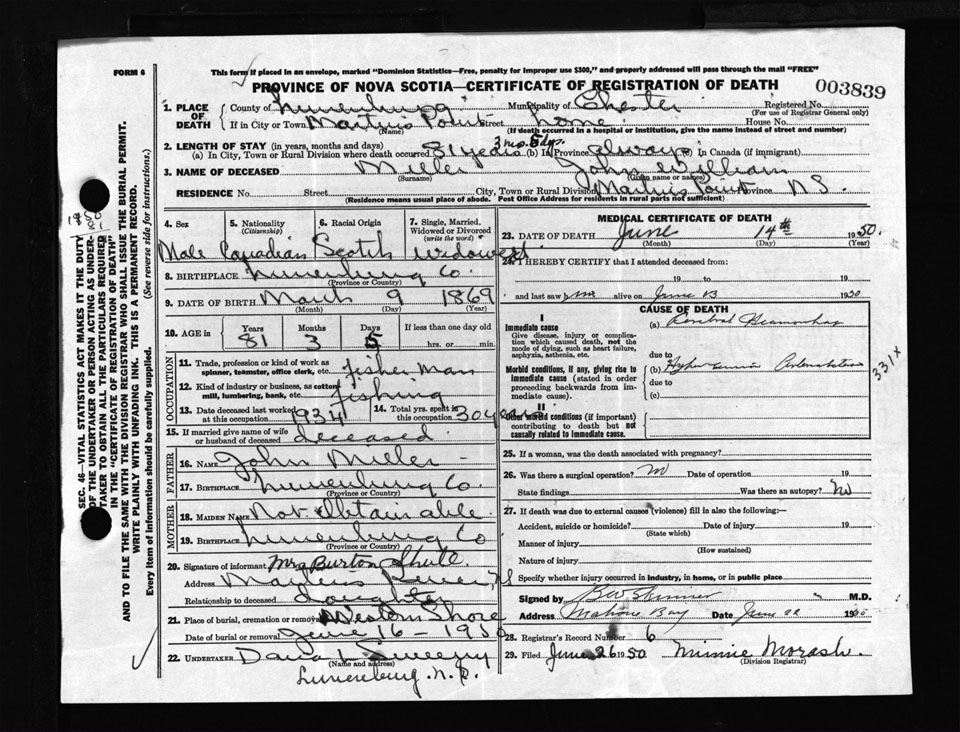 FORM 6
This form if placed in an envelope, marked "Dominion Statistics—Free, penalty for improper use $300," and properly addressed will pass through the mail "FREE"
PROVINCE OF NOVA SCOTIA—CERTIFICATE OF REGISTRATION OF DEATH
003839
1. PLACE OF DEATH County of Lunenburg Municipality of Chester Registered No.
(For use of Registrar General only)
If in City or Town Martins Point Street home House No.
(Name) (If death occurred in a hospital or institution, give the name instead of street and number)
2. LENGTH OF STAY (in years, months and days)
(a) In City, Town or Rural Division where death occurred 81 years 3 mos. 5 dys. (b) In Province always (c) In Canada (if immigrant)
3. NAME OF DECEASED Miller John William
(Surname) (Given name or names)
RESIDENCE No. Street City, Town or Rural Division Martins Point Province N S.
(Residence means usual place of abode. Post Office Address for residents in rural parts not sufficient)
4. Sex 5. Nationality (Citizenship) 6. Racial Origin 7. Single, Married, Widowed or Divorced (write the word)
Male Canadian Scotch widowed
8. BIRTHPLACE Lunenburg Co.
(Province or Country)
9. DATE OF BIRTH March 9 1869
(Month) (Day) (Year)
10. AGE in Years Months Days If less than one day old
81 3 5 hrs. or min.
OCCUPATION
11. Trade, profession or kind of work as spinner, teamster, office clerk, etc. Fisher Man
12. Kind of industry or business, as cotton mill, lumbering, bank, etc. Fishing
13. Date deceased last worked at this occupation 1934 14. Total yrs. spent in this occupation 30 years
15. If married give name of wife or husband of deceased deceased
FATHER
16. NAME John Miller
17. BIRTHPLACE Lunenburg Co.
(Province or Country)
MOTHER
18. MAIDEN NAME Not Obtainable
19. BIRTHPLACE Lunenburg Co
(Province or Country)
20. Signature of informant Mrs Burton
Address
Relationship to deceased daughter
21. Place of burial, cremation or removal Western Shore
Date of burial or removal June 16 - 1950
22. UNDERTAKER Sweeny
(Name and address)
Lunenburg. N.S.
MEDICAL CERTIFICATE OF DEATH
23. DATE OF DEATH June 14th 1950.
(Month) (Day) (Year)
24. I HEREBY CERTIFY that I attended deceased from:
19 to 19
and last saw him alive on June 13 1950
CAUSE OF DEATH
I
Immediate cause
Give disease, injury or complication which caused death, not the mode of dying, such as heart failure, asphyxia, asthenia, etc.
(a) Cerebral Heamorrhage
due to
Morbid conditions, if any, giving rise to immediate cause (stated in order proceeding backwards from immediate cause).
(b) Hypertension
due to
(c)
331X
II
Other morbid conditions (if important) contributing to death but not causally related to immediate cause.
25. If a woman, was the death associated with pregnancy?
26. Was there a surgical operation? No Date of operation 19
State findings Was there an autopsy? No
27. If death was due to external causes (violence) fill in also the following:—
Accident, suicide or homicide? Date of injury 19
(State which)
Manner of injury
(How sustained)
Nature of injury
Specify whether injury occurred in industry, in home, or in public place
Signed by M.D.
Address Mahone Bay Date June 22 1950
28. Registrar's Record Number 6
29. Filed June 26 1950 Minnie Morash.
(Division Registrar)
SEC. 46—VITAL STATISTICS ACT MAKES IT THE DUTY OF THE UNDERTAKER OR PERSON ACTING AS UNDERTAKER TO OBTAIN ALL THE PARTICULARS REQUIRED IN THE "CERTIFICATE OF REGISTRATION OF DEATH"
AND TO FILE THE SAME WITH THE DIVISION REGISTRAR WHO SHALL ISSUE THE BURIAL PERMIT.
WRITE PLAINLY WITH UNFADING INK. THIS IS A PERMANENT RECORD.
Every item of information should be carefully supplied. (See reverse side for instructions.)